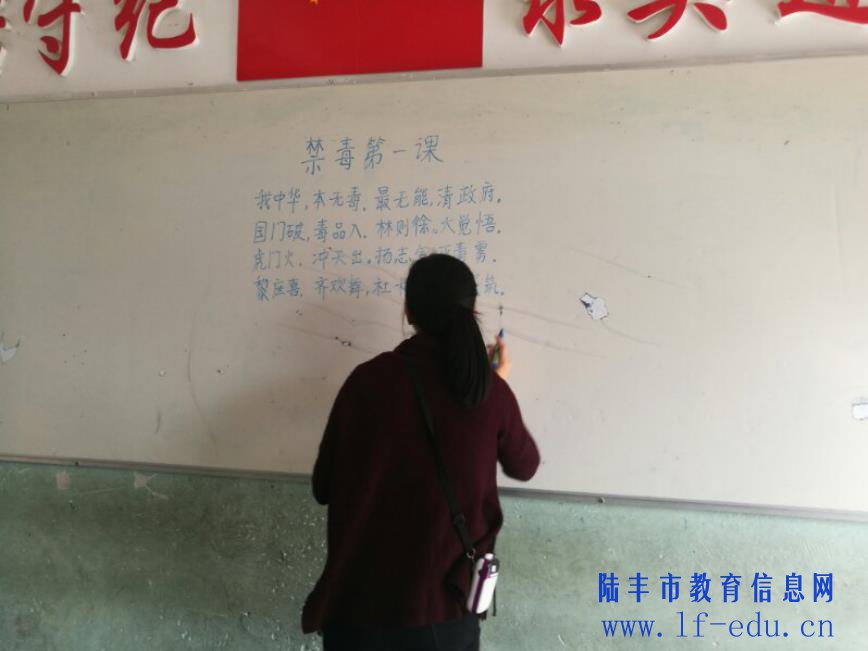 守纪 求实 进
禁毒第一课
我中华,本无毒.最无能,清政府.
国门破,毒品入.林则徐。大觉悟.
虎门火.冲天出。扬志 毒雾.
黎庶喜.齐欢舞,社 筑.
陆丰市教育信息网
www.lf-edu.cn